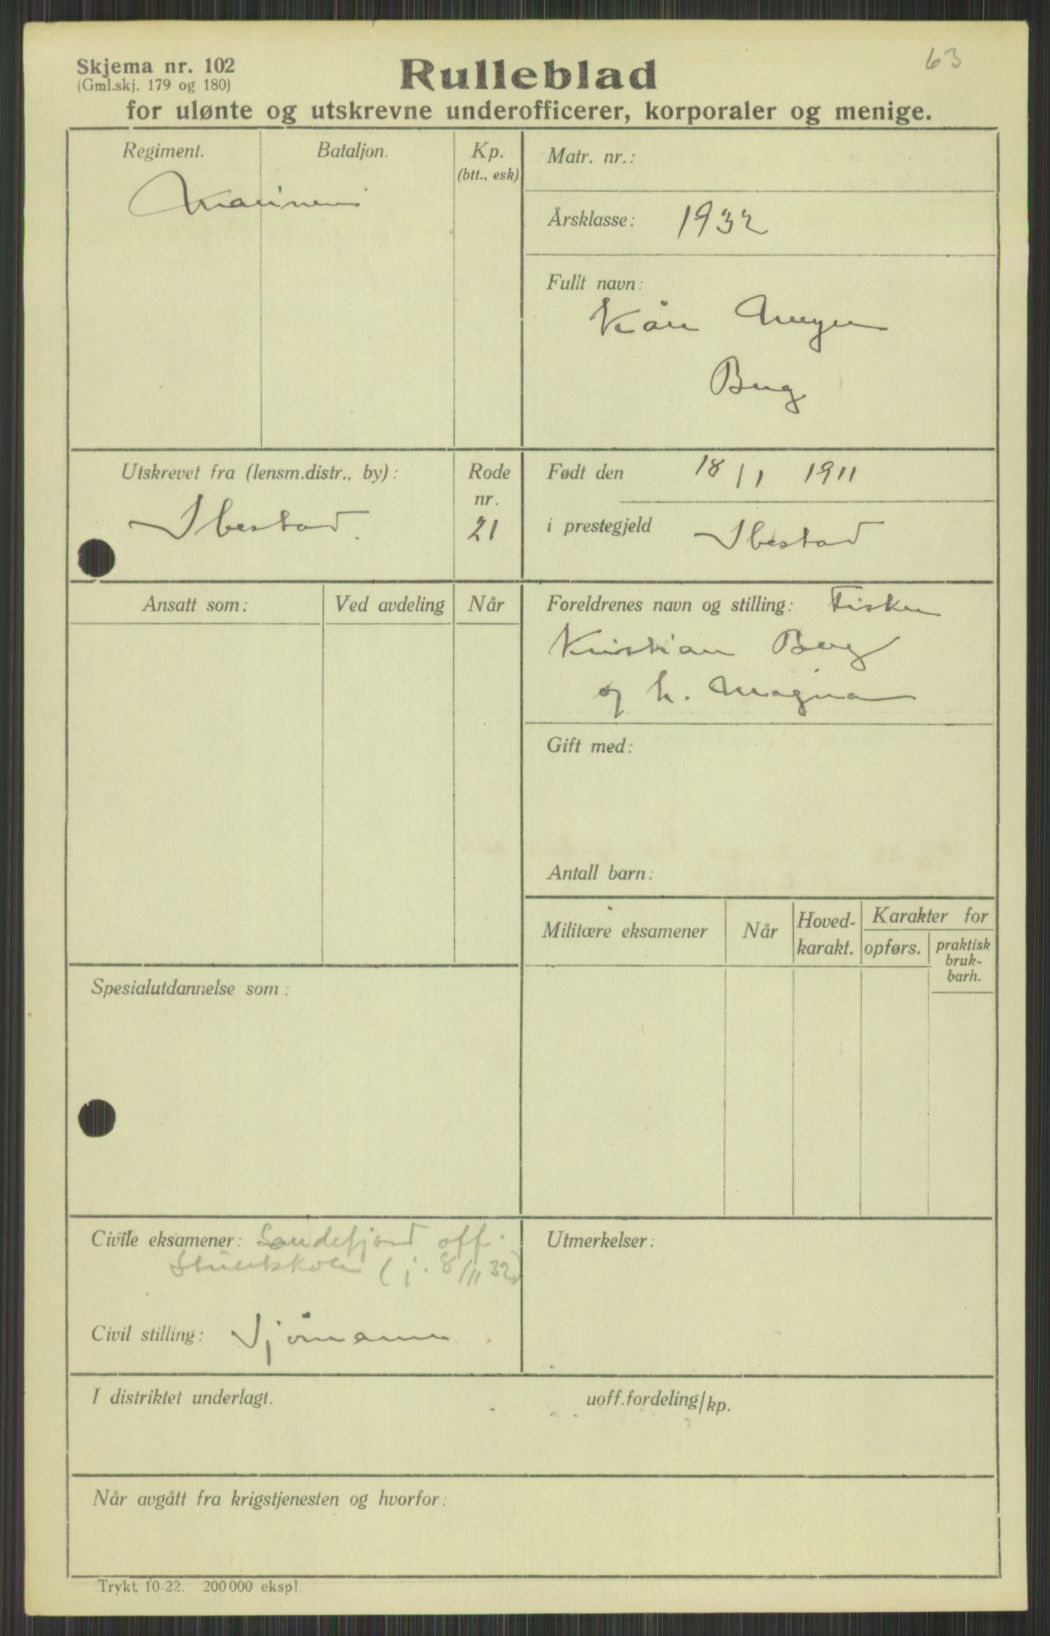 63
Skjema nr. 102
(Gml.skj. 179 og 180)
Rulleblad
for ulønte og utskrevne underofficerer, korporaler og menige.
Regiment.
Bataljon.
Kp.
(btt., esk)
Marinen
Matr. nr.:
Årsklasse: 1932
Fullt navn:
Kåre
Berg
Utskrevet fra (lensm.distr., by):
Ibestad.
Rode
nr.
21
Født den 18/1 1911
i prestegjeld Ibestad
Ansatt som:
Ved avdeling
Når
Foreldrenes navn og stilling: Fisker
Kristian Berg
og h. Magna
Gift med:
Antall barn:
Militære eksamener
Når
Hoved-
karakt.
Karakter for
opførs.
praktisk
bruk-
barh.
Spesialutdannelse som:
Civile eksamener: Sandefjord off.
(j. 8/11 32)
Civil stilling: Sjømann
Utmerkelser:
I distriktet underlagt.
uoff.fordeling/kp.
Når avgått fra krigstjenesten og hvorfor:
Trykt 10-22. 200 000 ekspl.